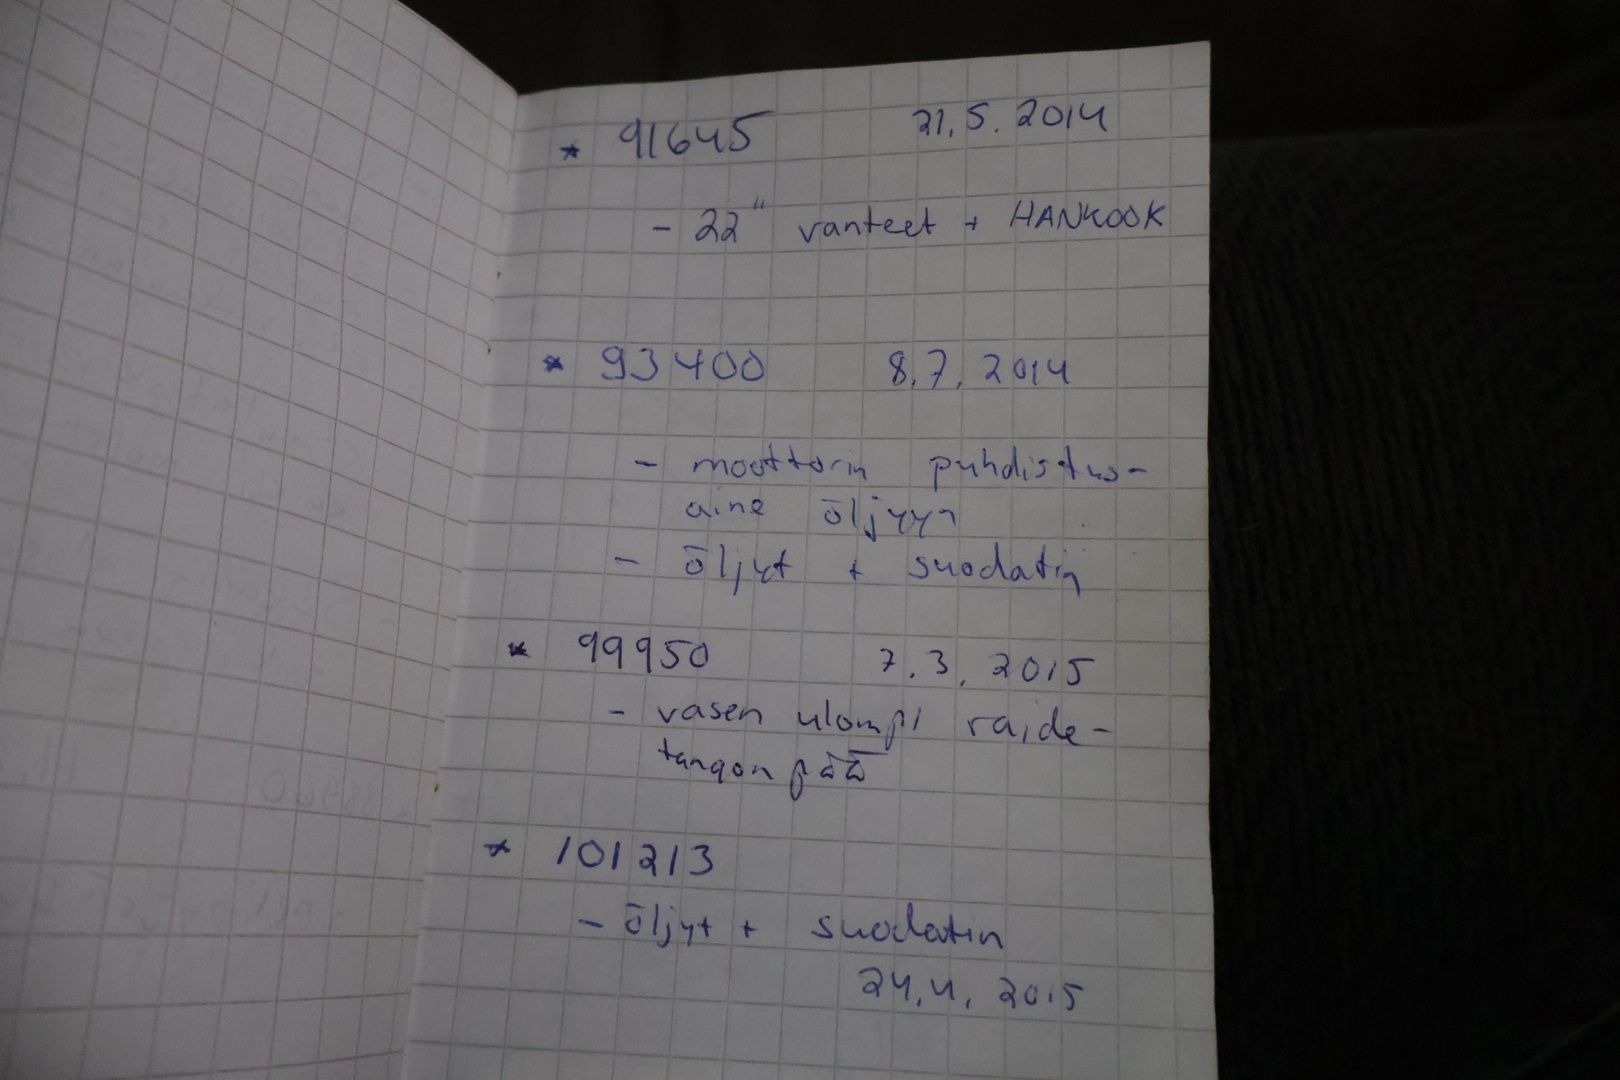 * 91645 21.5.2014
- 22" vanteet + HANKOOK
* 93400 8.7.2014
- moottorin puhdistus-
aine öljyyn
- öljyt + suodatin
* 99950 7.3.2015
- vasen ulompi raide-
tangon pää
* 101213
- öljyt + suodatin
24.4.2015